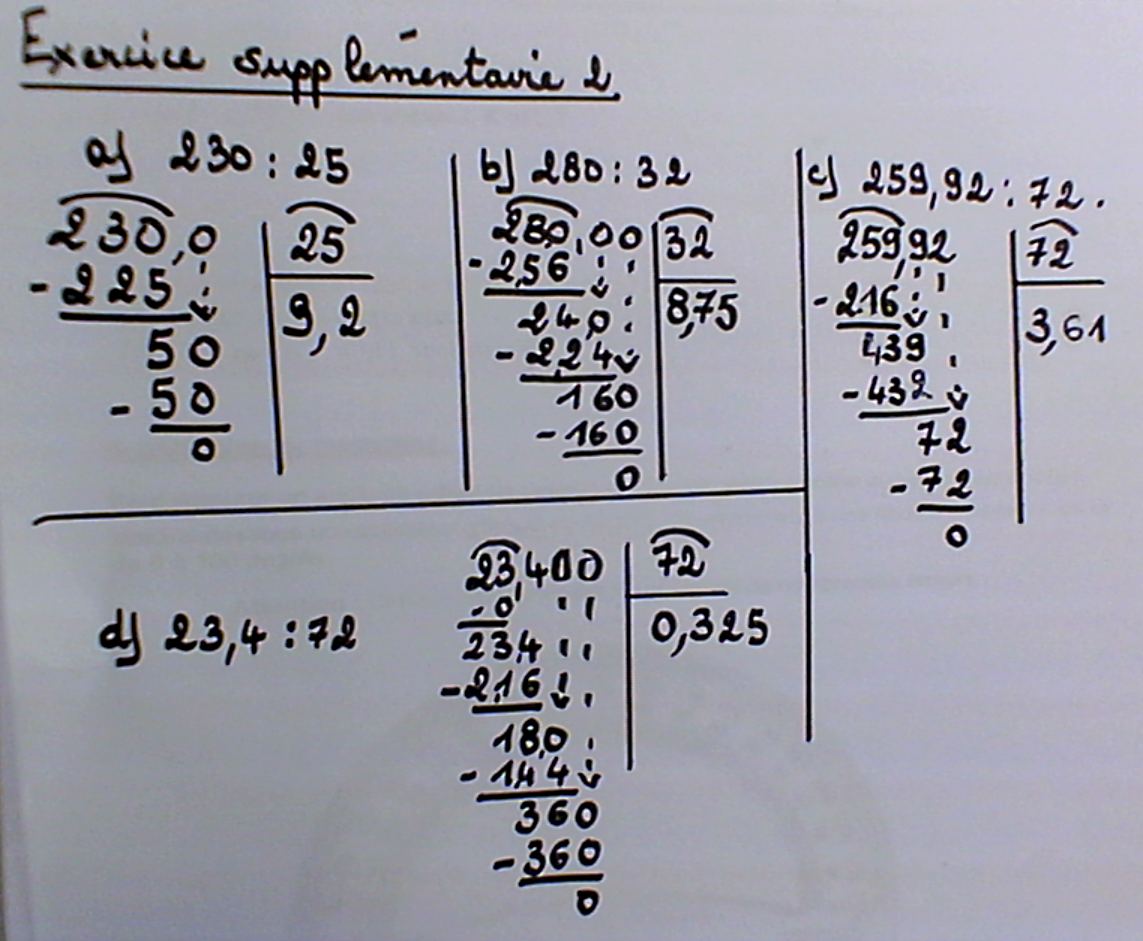 Exercice supplémentaire 2
a) 230 : 25
230,0 25
- 225 9,2
50
- 50
0
b) 280 : 32
280,00 32
- 256 8,75
240
- 224
160
- 160
0
c) 259,92 : 72.
259,92 72
- 216 3,61
439
- 432
72
- 72
0
d) 23,4 : 72
23,400 72
- 0 0,325
234
- 216
180
- 144
360
- 360
0